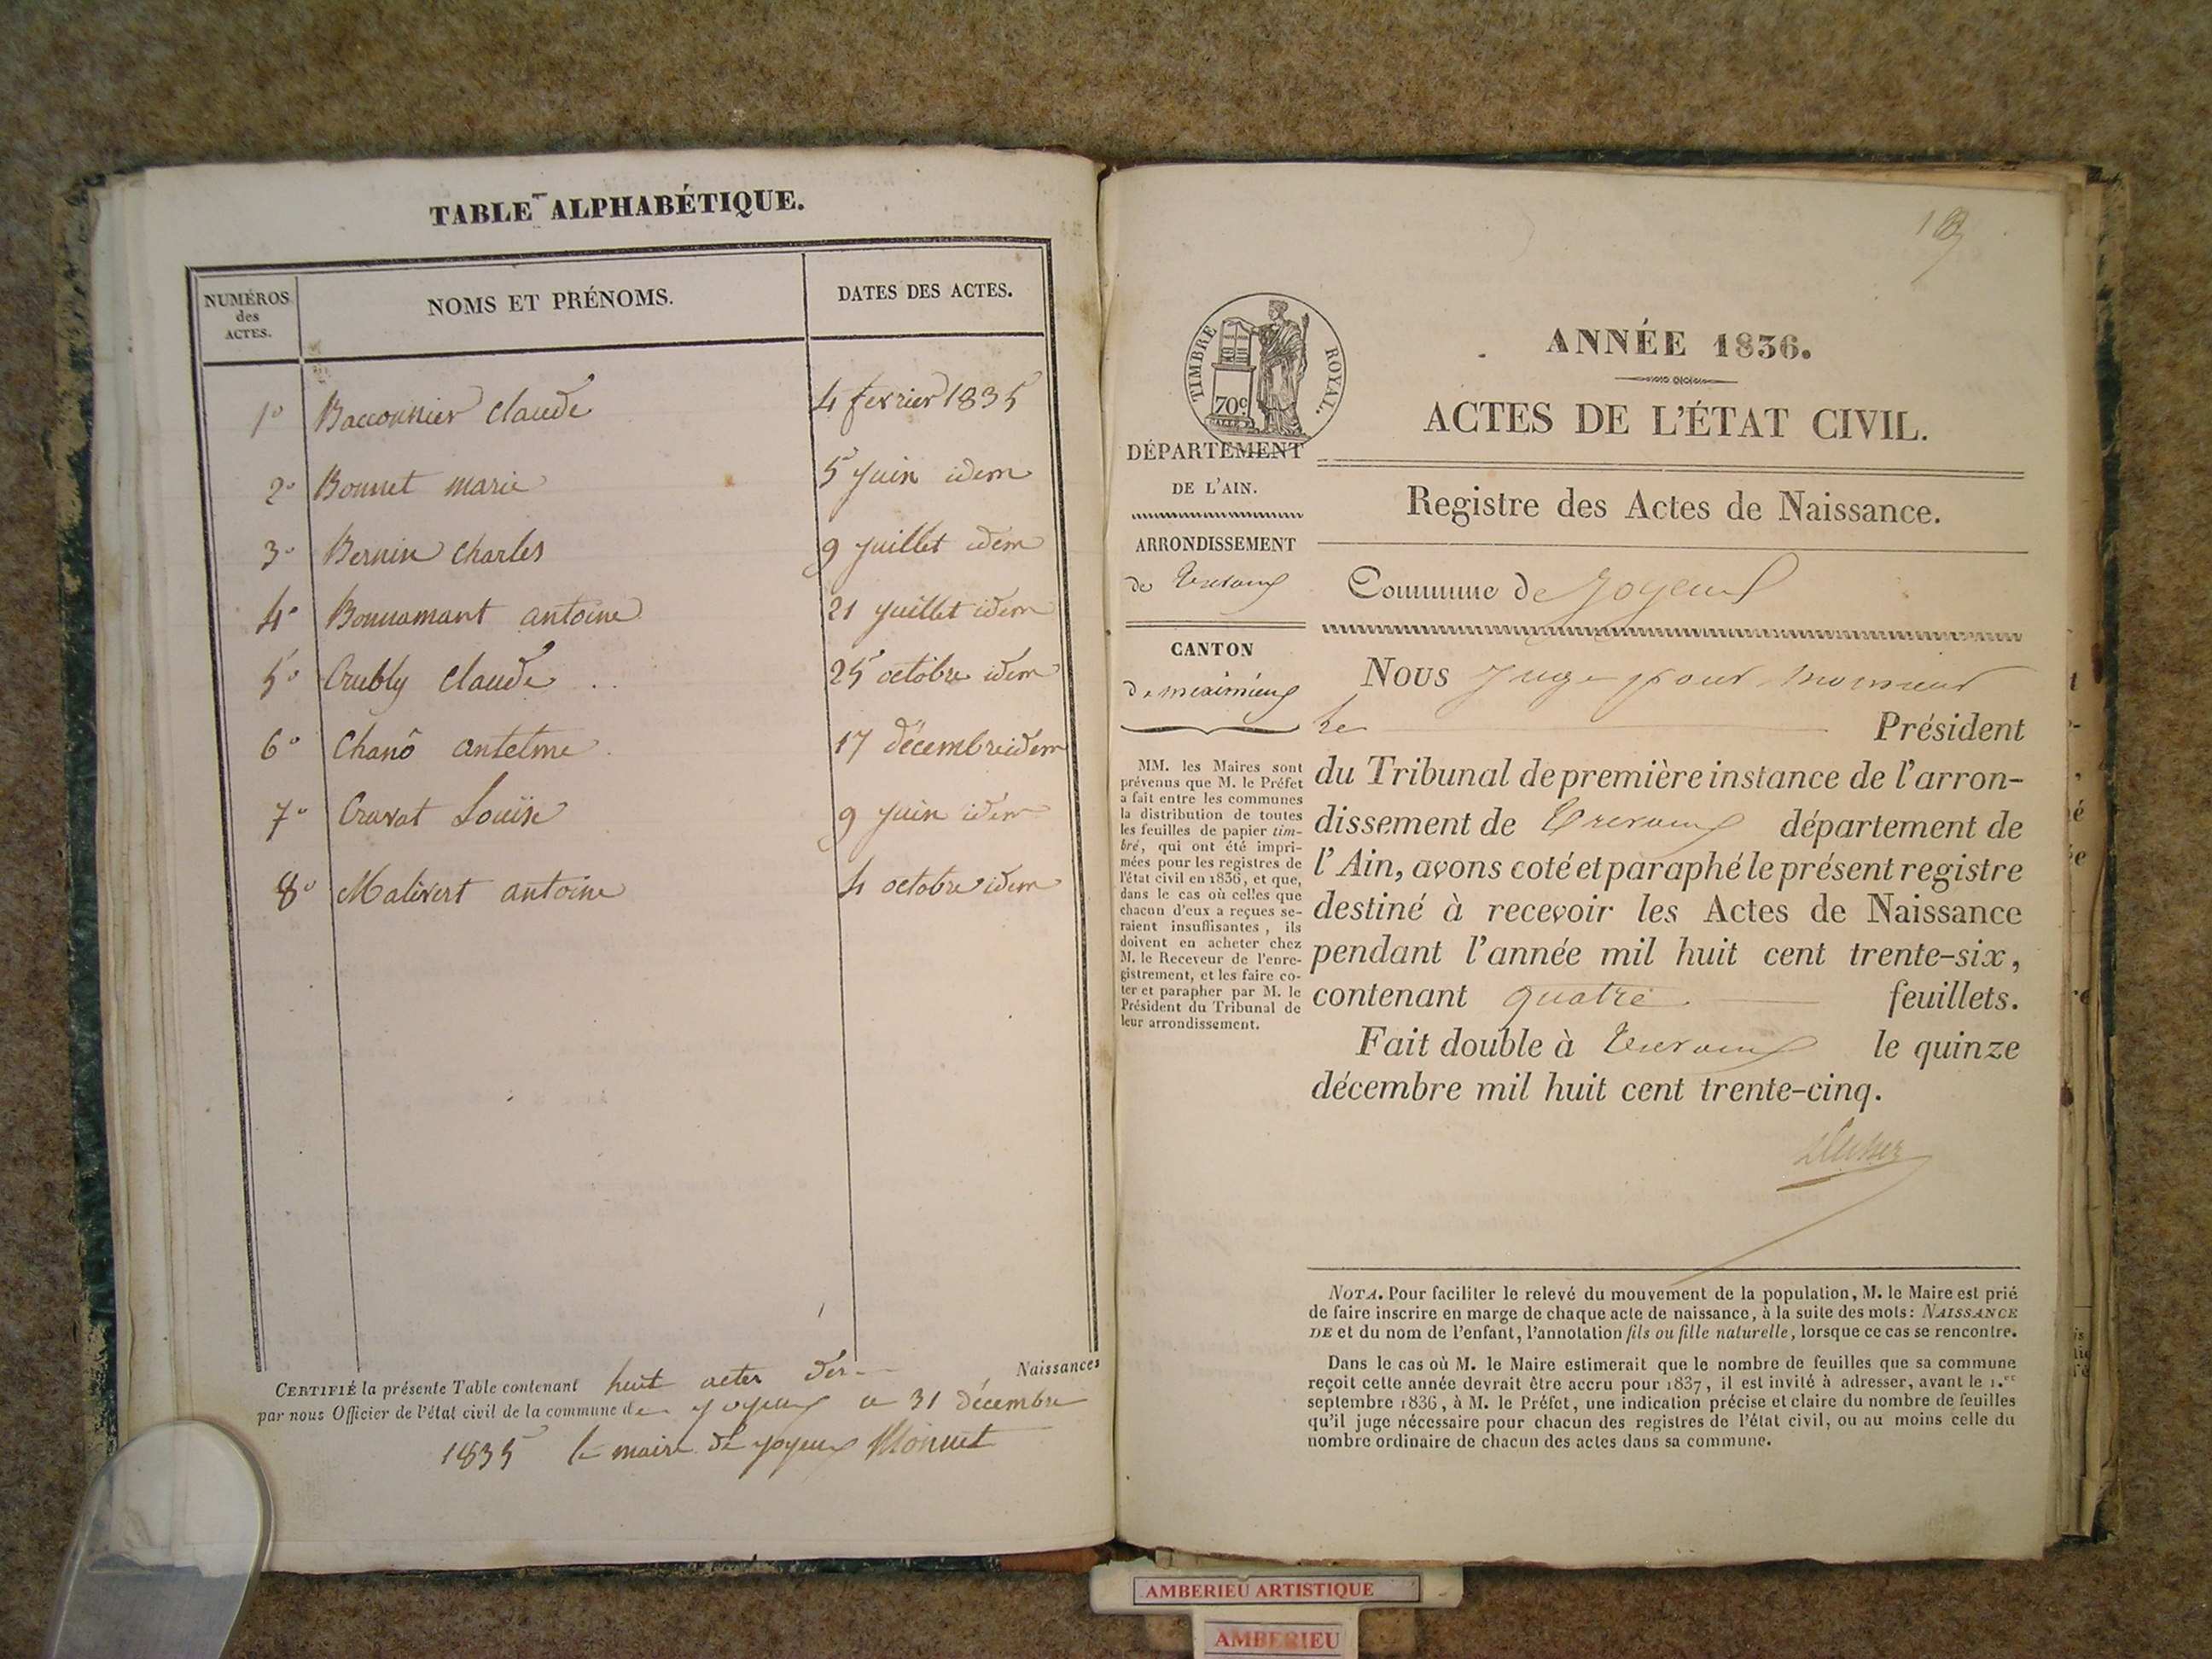 TABLE ALPHABÉTIQUE.
NUMÉROS des ACTES. NOMS ET PRÉNOMS. DATES DES ACTES.
1° Bacconnier Claude 4 fevrier 1835
2° Bonnet marie 5 juin idem
3° Bernin Charles 9 juillet idem
4° Bonnamant antoine 21 juillet idem
5° Crubly Claude 25 octobre idem
6° Chanô antelme 17 décembre idem
7° Cravat Louïse 9 juin idem
8° Malivert antoine 4 octobre idem
CERTIFIÉ la présente Table contenant huit actes des Naissances
par nous Officier de l'état civil de la commune de joyeux ce 31 décembre
1835 le maire de joyeux Monnet
ANNÉE 1836.
ACTES DE L'ÉTAT CIVIL.
TIMBRE ROYAL.
70c
DÉPARTEMENT
DE L'AIN.
ARRONDISSEMENT
de Trevoux
CANTON
de meximieux
MM. les Maires sont
prévenus que M. le Préfet
a fait entre les communes
la distribution de toutes
les feuilles de papier tim-
bré, qui ont été impri-
mées pour les registres de
l'état civil en 1836, et que,
dans le cas où celles que
chacun d'eux a reçues se-
raient insuffisantes, ils
doivent en acheter chez
M. le Receveur de l'enre-
gistrement, et les faire co-
ter et parapher par M. le
Président du Tribunal de
leur arrondissement.
Registre des Actes de Naissance.
Commune de Joyeux
NOUS juge pour monsieur
le Président
du Tribunal de première instance de l'arron-
dissement de Trevoux département de
l'Ain, avons coté et paraphé le présent registre
destiné à recevoir les Actes de Naissance
pendant l'année mil huit cent trente-six,
contenant quatre feuillets.
Fait double à Trevoux le quinze
décembre mil huit cent trente-cinq.
NOTA. Pour faciliter le relevé du mouvement de la population, M. le Maire est prié
de faire inscrire en marge de chaque acte de naissance, à la suite des mots: NAISSANCE
DE et du nom de l'enfant, l'annotation fils ou fille naturelle, lorsque ce cas se rencontre.
Dans le cas où M. le Maire estimerait que le nombre de feuilles que sa commune
reçoit cette année devrait être accru pour 1837, il est invité à adresser, avant le 1.er
septembre 1836, à M. le Préfet, une indication précise et claire du nombre de feuilles
qu'il juge nécessaire pour chacun des registres de l'état civil, ou au moins celle du
nombre ordinaire de chacun des actes dans sa commune.
AMBERIEU ARTISTIQUE
AMBERIEU